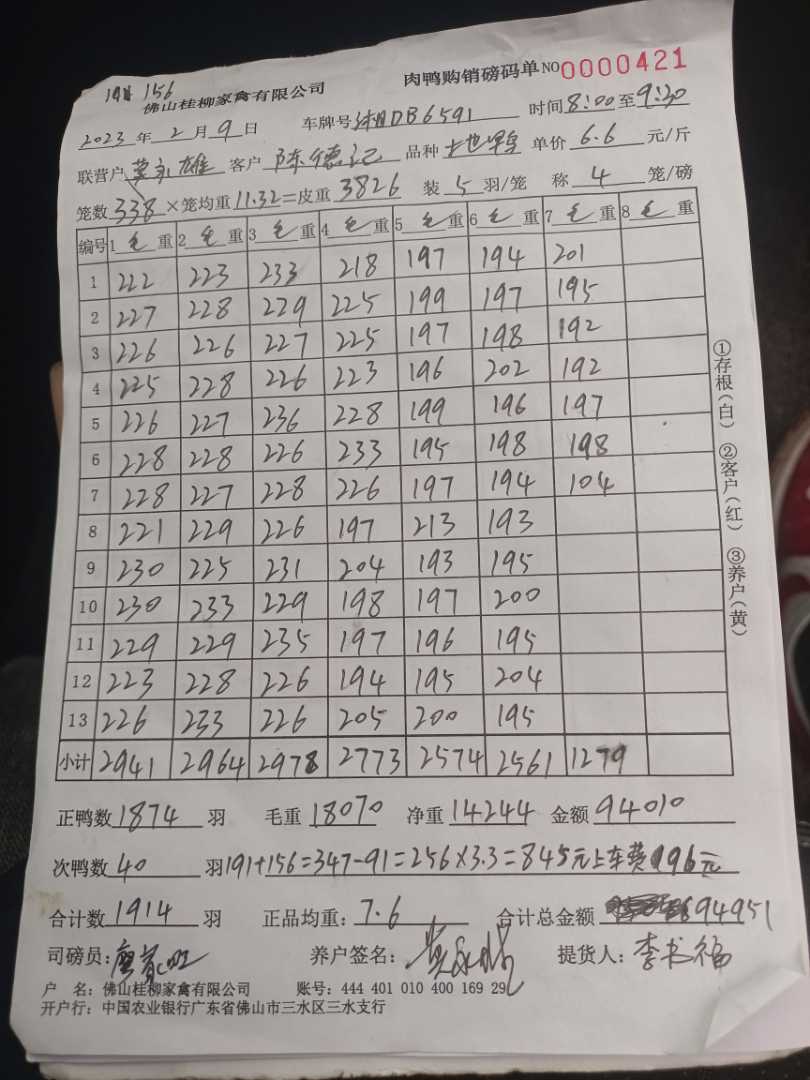 191 156
佛山桂柳家禽有限公司 肉鸭购销磅码单 NO 0000421
2023 年 2 月 9 日 车牌号 湘DB6591 时间 8:00 至 9:30
联营户 莫永雄 客户 陈德记 品种 土北鸭 单价 6.6 元/斤
笼数 338 ×笼均重 11.32 =皮重 3826 装 5 羽/笼 称 4 笼/磅
编号 1 毛 重 2 毛 重 3 毛 重 4 毛 重 5 毛 重 6 毛 重 7 毛 重 8 毛 重
1 222 223 233 218 197 194 201
2 227 228 229 225 199 197 195
3 226 226 227 225 197 198 192
4 225 228 226 223 196 202 192
5 226 227 236 228 199 196 197
6 228 228 226 233 195 198 198
7 228 227 228 226 197 194 104
8 221 229 226 197 213 193
9 230 225 231 204 193 195
10 230 233 229 198 197 200
11 229 229 235 197 196 195
12 223 228 226 194 195 204
13 226 233 226 205 200 195
小计 2941 2964 2978 2773 2574 2561 1279
正鸭数 1874 羽 毛重 18070 净重 14244 金额 94010
次鸭数 40 羽 191+156=347-91=256×3.3=845元上车费196元
合计数 1914 羽 正品均重: 7.6 合计总金额 94951
司磅员: 养户签名: 提货人: 李书福
户 名: 佛山桂柳家禽有限公司 账号: 444 401 010 400 169 29
开户行: 中国农业银行广东省佛山市三水区三水支行
①存根(白) ②客户(红) ③养户(黄)